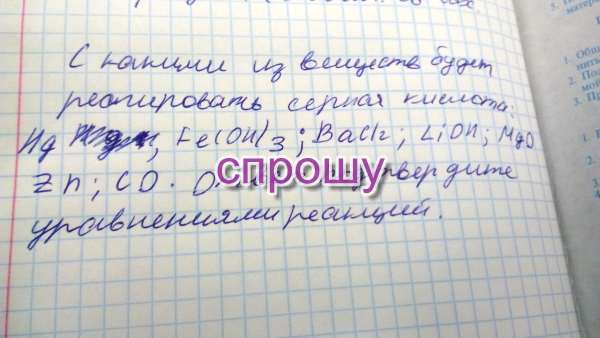 С какими из веществ будет
реагировать серная кислота:
Hg, Fe(OH)3; BaCl2; LiOH; MgO
Zn; CO. подтвердите
уравнениями реакций.
спрошу